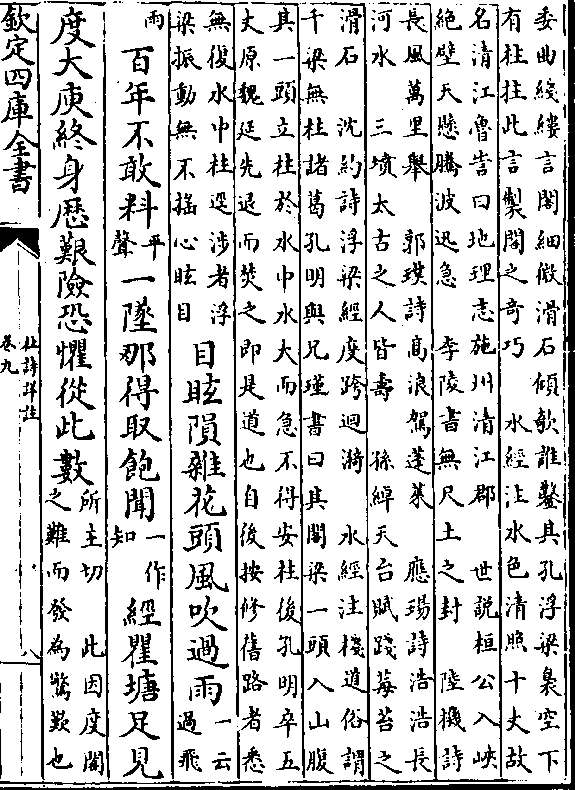 委曲綫縷言閣細㣲滑石傾欹誰鑿其孔浮梁裊空下
有柱拄此言製閣之奇巧　水經注水色清照十丈故
名清江魯訔曰地理志施州清江郡　世説桓公入峽
絶壁天懸騰波迅急　李陵書無尺土之封　陸機詩
長風萬里舉　郭璞詩高浪駕蓬萊　應瑒詩浩浩長
河水　三墳太古之人皆壽　孫綽天台賦踐莓苔之
滑石　沈約詩浮梁經度跨迴漪　水經注棧道俗謂
千梁無柱諸葛孔明與兄瑾書曰其閣梁一頭入山腹
其一頭立柱於水中水大而急不得安柱後孔明卒五
丈原魏延先退而焚之即是道也自後按修舊路者悉
無復水中柱逕涉者浮
梁振動無不揺心眩目
目眩隕雜花頭風吹過雨一云過飛
雨百年不敢料平聲一墜那得取飽聞一作知經瞿塘足見
度大庾終身歴艱險恐懼從此數
所主切　此因度閣
之難而發為驚歎也
欽定四庫全書
杜詩詳註
卷九
八